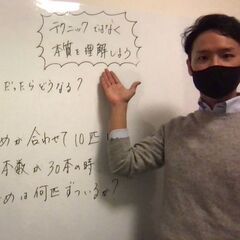 テクニックではなく
本質を理解しよう
だったらどうなる?
めが合わせて10匹
本数が30本の時
めは何匹ずついるか?